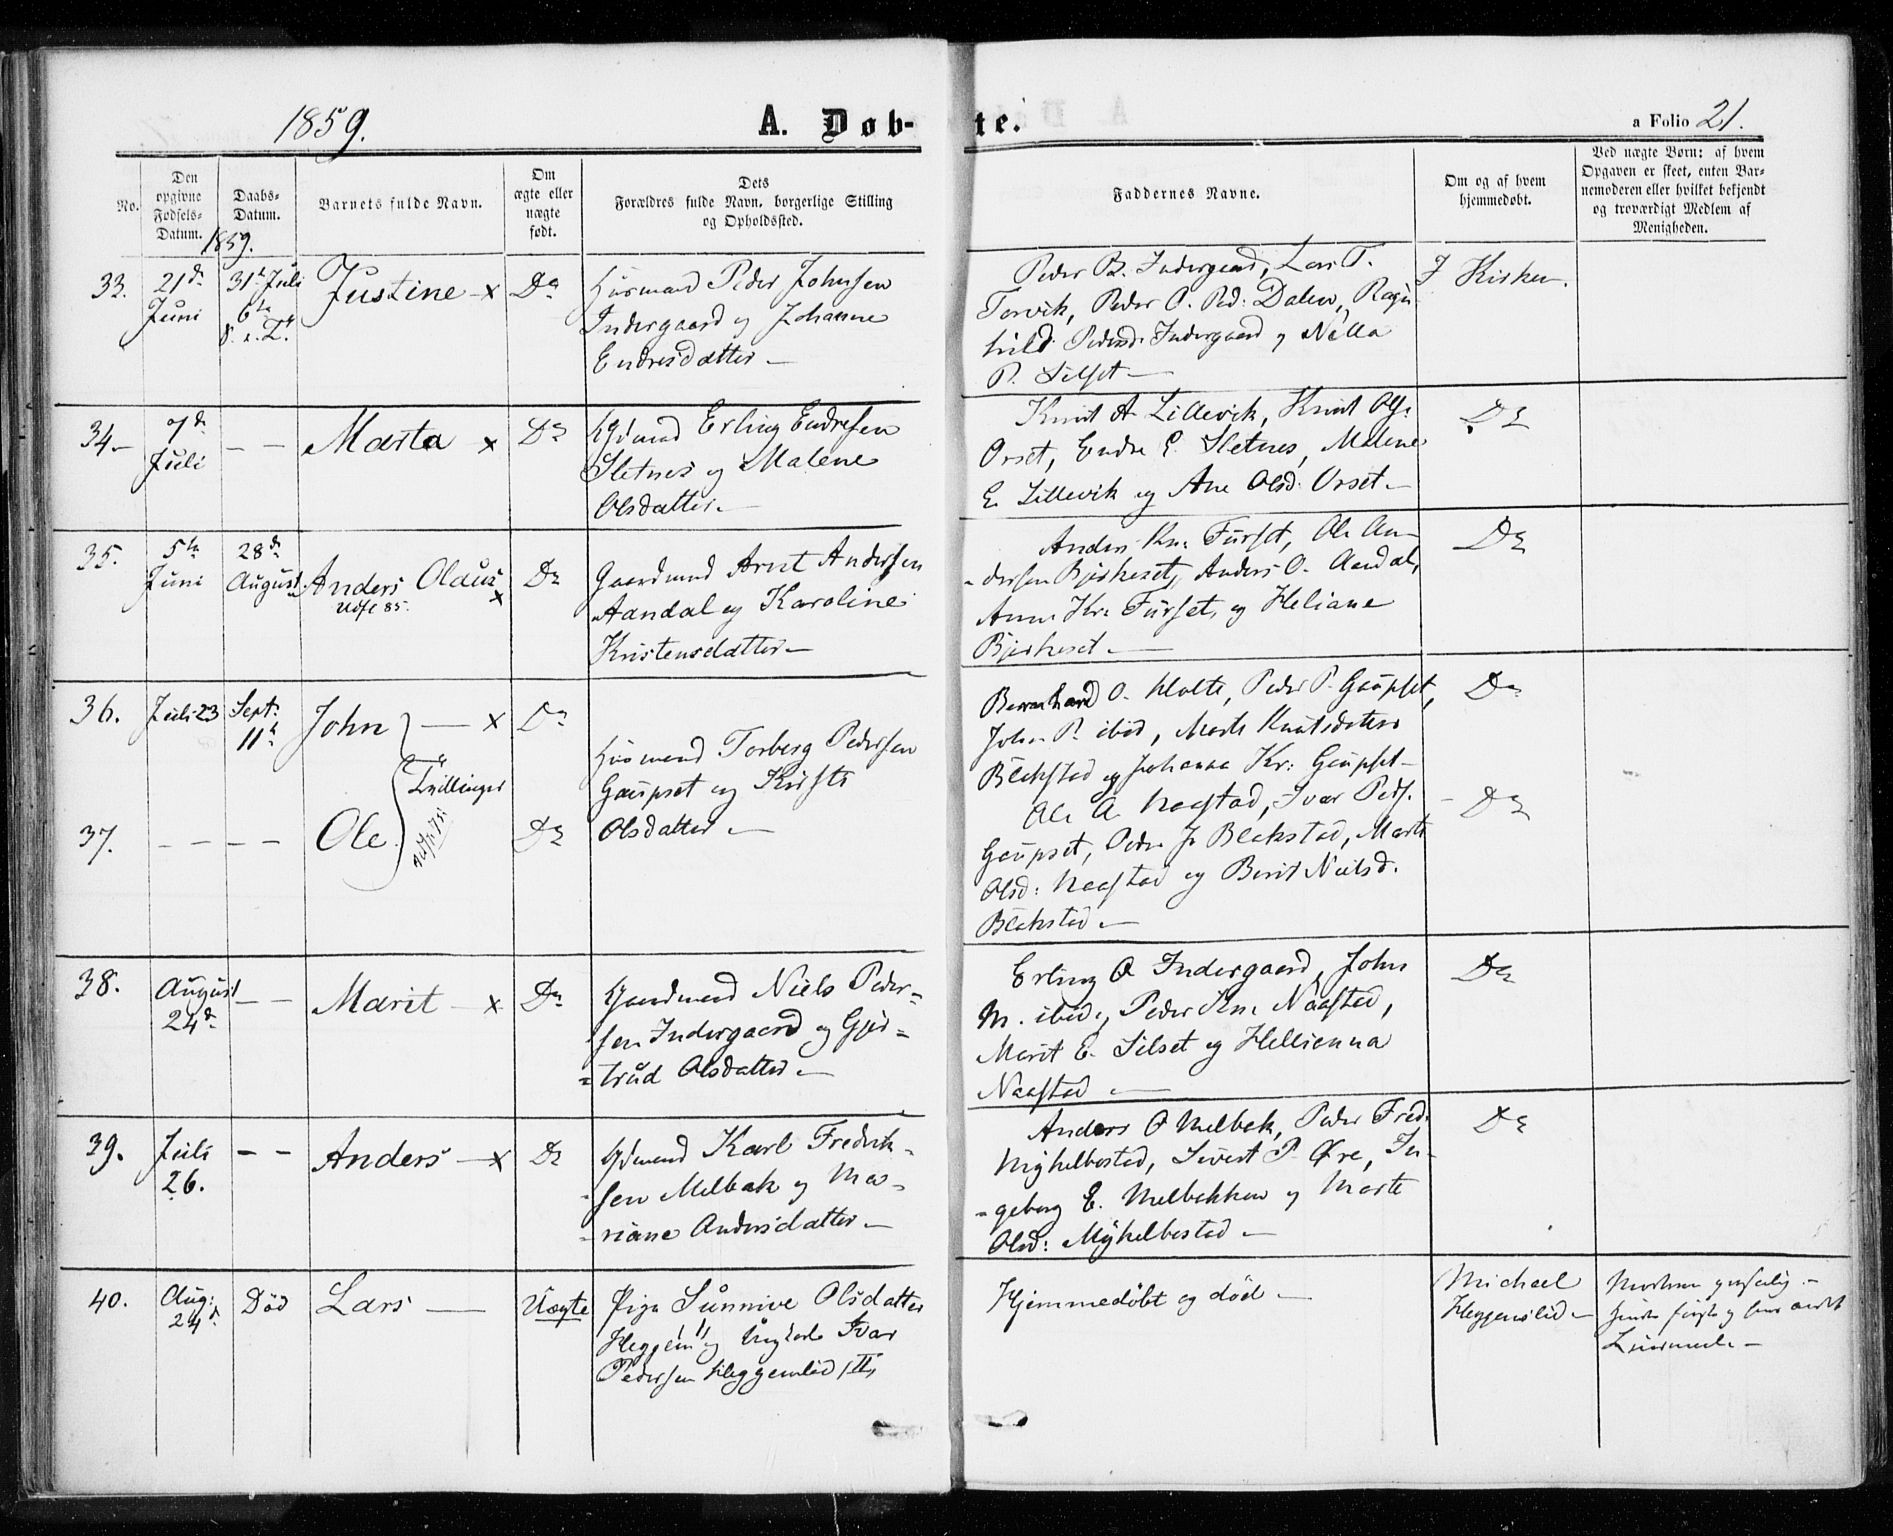 1859.
A. Døb-
te.
a Folio 21.
No.
Den
opgivne
Fødsels-
Datum.
Daabs-
Datum.
1859.
Barnets fulde Navn.
Om
ægte eller
uægte
født.
Dets
Forældres fulde Navn, borgerlige Stilling
og Opholdssted.
Faddernes Navne.
Om og af hvem
hjemmedøbt.
Ved uægte Børn: af hvem
Opgaven er skeet, enten Bar-
nemoderen eller hvilket bekjendt
og troværdigt Medlem af
Menigheden.
33.
21de
Juni
31te Juli
6te
S. e. T.
Justine — x
Do
Husmand Peder Johnsen
Indergaard og Johanne
Endresdatter —
Peder B. Indergaard, Lars T.
Torvik, Peder O. Ped: Dalen, Ragn
hild Pedersd: Indergaard og Nilla
P. Silset —
I Kirken.
34 —
7de
Juli
— —
Marta x
Do
Gdmand Erling Endresen
Sletnes og Malene
Olsdatter. —
Knut A Lillevik, Knut Ols:
Orset, Endre E. Sletnes, Malene
E. Lillevik og Ane Olsd: Orset —
Do
35.
5te
Juni
28de
August
Anders Olaus x
Udfl 85.
Do
Gaardmand Arnt Andersen
Aandal og Karoline
Kristensdatter —
Anders Kr. Furset, Ole An-
-dersen Bjerkeset, Anders O. Aandal,
Anne Kr. Furset, og Heliane
Bjerkeset. —
Do
36.
Juli 23
Sept:
11te
John — x
Do
Tvillinger
Husmand Torberg Pedersen
Gaupset og Kirsti
Olsdatter —
Bernhard O. Holte, Peder P. Gaupset,
John P. ibid, Marit Knutsdatter
Blekstad og Johanna Kr: Gaupset —
Do
37.
— — — —
Ole
Do
Ole A Naastad, Ivar Peds.
Gaupset, Peder J Blekstad, Marte
Olsd: Naastad og Berit Nielsd.
Blekstad —
Do
38.
August
24de
— —
Marit — x
Do
Gaardmand Niels Peder-
sen Indergaard og Gjer-
-trud Olsdatter —
Erling O Indergaard, John
M. ibid, Peder Kn. Naastad,
Marit E. Silset og Hellienna
Naastad —
Do
39.
Juli
26.
— —
Anders — x
Do
Gdmand Karl Fredrik-
sen Melbak og Ma-
-riane Andersdatter —
Anders O Melbak, Peder Fred:
Mykelbostad, Sivert P. Øre, In-
-geborg E. Melbakken og Marte
Olsd: Mykelbostad —
Do
40.
Aug:
24de
Død
Lars —
Uægte
Pige Sunnive Olsdatter
Heggem og Ungkarl Ivar
Pedersen Heggemlid
Hjemmedøbt og død —
Michael
Heggemslid —